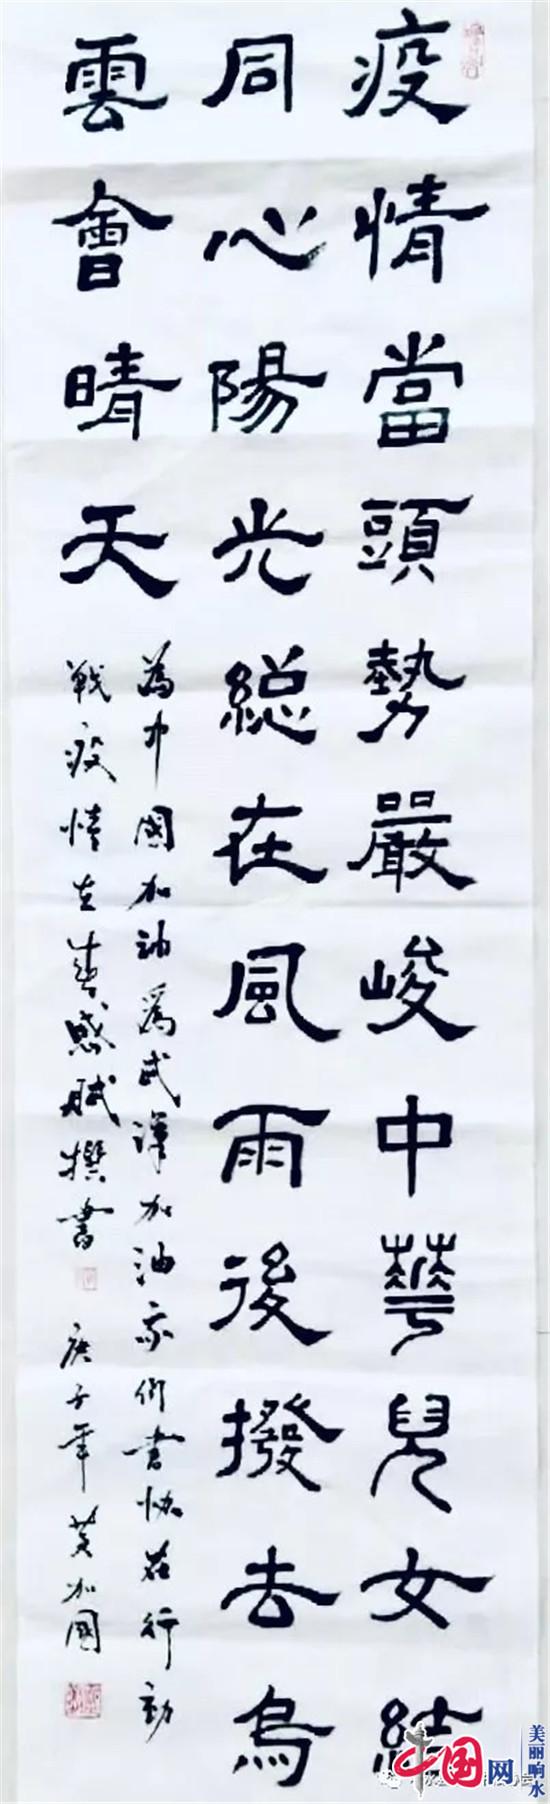 疫情當頭勢嚴峻中華兒女結
同心陽光総在風雨後撥去烏
雲會晴天
為中國加油為武漢加油我们書协在行動
戰疫情立春感賦撰書
庚子年 黄加國
中国网
美丽响水